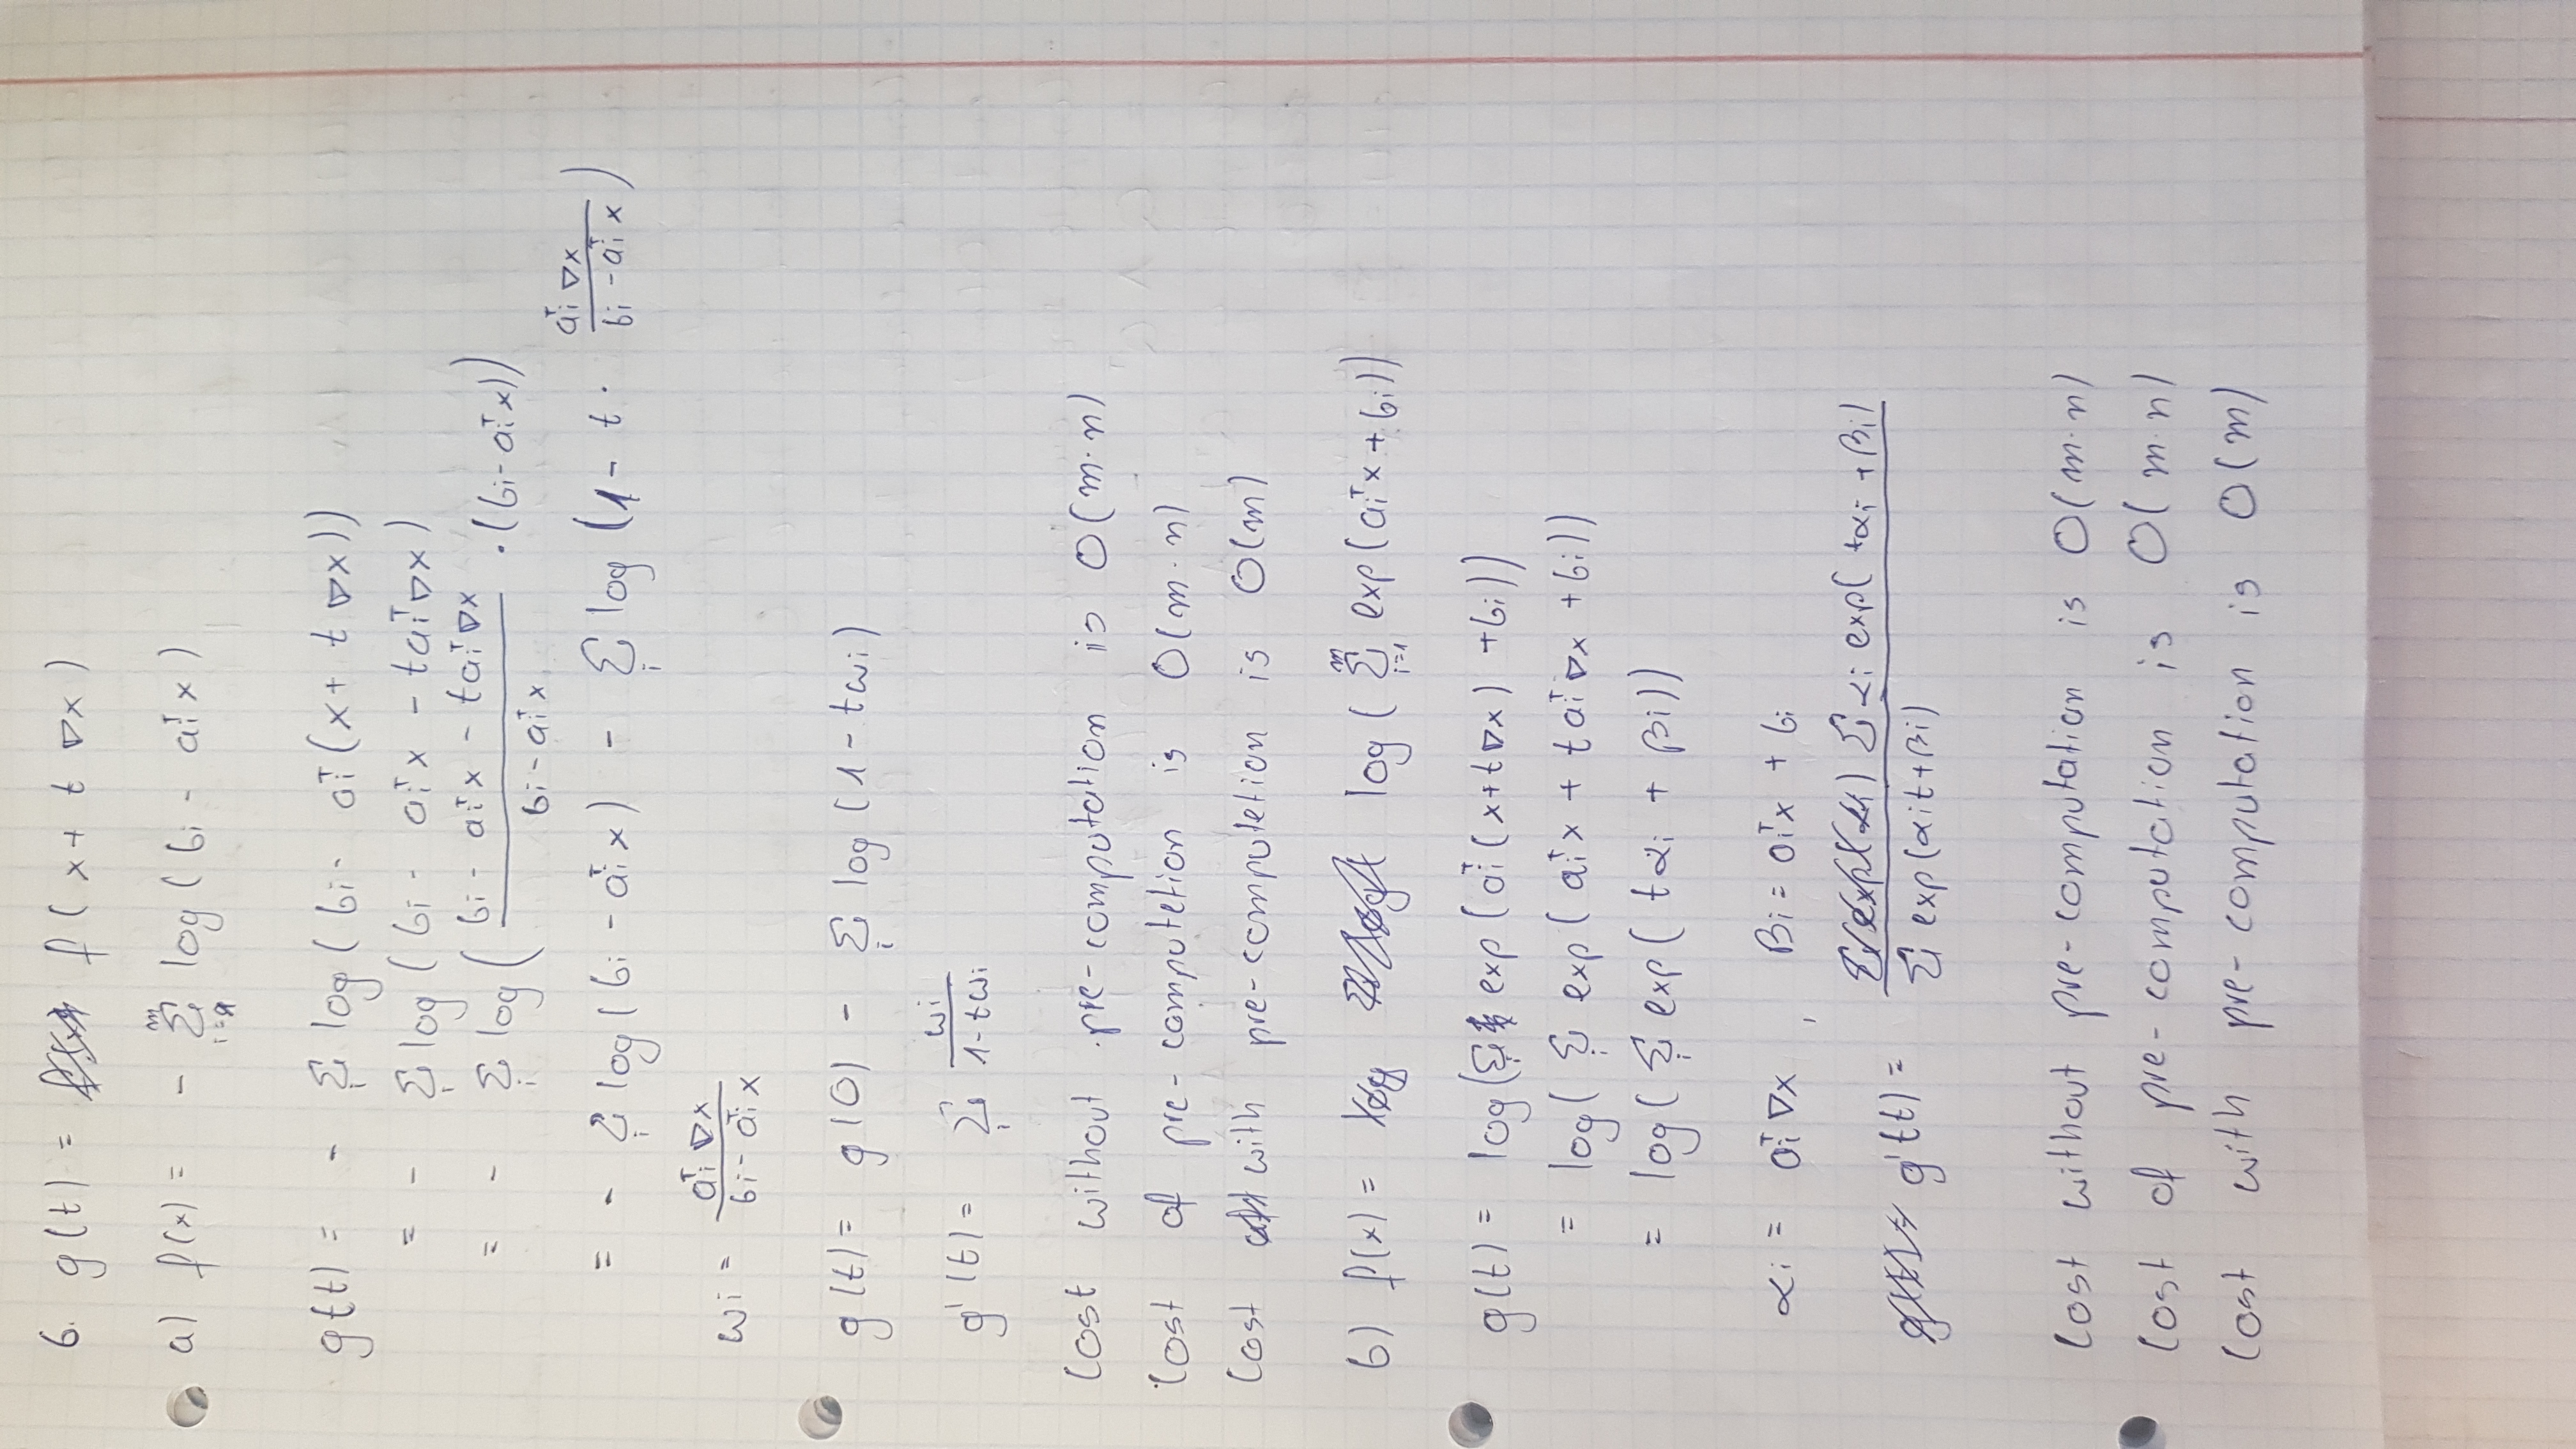 6. g(t) = f(x + t ∇x)
a) f(x) = - Σ_{i=1}^{m} log(bi - aiᵀx)
g(t) = - Σ_i log(bi - aiᵀ(x + t ∇x))
= - Σ_i log(bi - aiᵀx - taiᵀ∇x)
= - Σ_i log((bi - aiᵀx - taiᵀ∇x)/(bi - aiᵀx) · (bi - aiᵀx))
= - Σ_i log(bi - aiᵀx) - Σ_i log(1 - t · (aiᵀ∇x)/(bi - aiᵀx))
wi = (aiᵀ∇x)/(bi - aiᵀx)
g(t) = g(0) - Σ_i log(1 - twi)
g'(t) = Σ_i wi/(1 - twi)
Cost without pre-computation is O(m·n)
Cost of pre-computetion is O(m·n)
Cost with pre-computetion is O(m)
b) f(x) = log(Σ_{i=1}^{m} exp(aiᵀx + bi))
g(t) = log(Σ_i exp(aiᵀ(x + t∇x) + bi))
= log(Σ_i exp(aiᵀx + taiᵀ∇x + bi))
= log(Σ_i exp(tαi + βi))
αi = aiᵀ∇x, βi = aiᵀx + bi
g'(t) = (Σ αi exp(tαi + βi))/(Σ exp(αit + βi))
Cost without pre-computation is O(m·n)
Cost of pre-computation is O(m·n)
Cost with pre-computation is O(m)